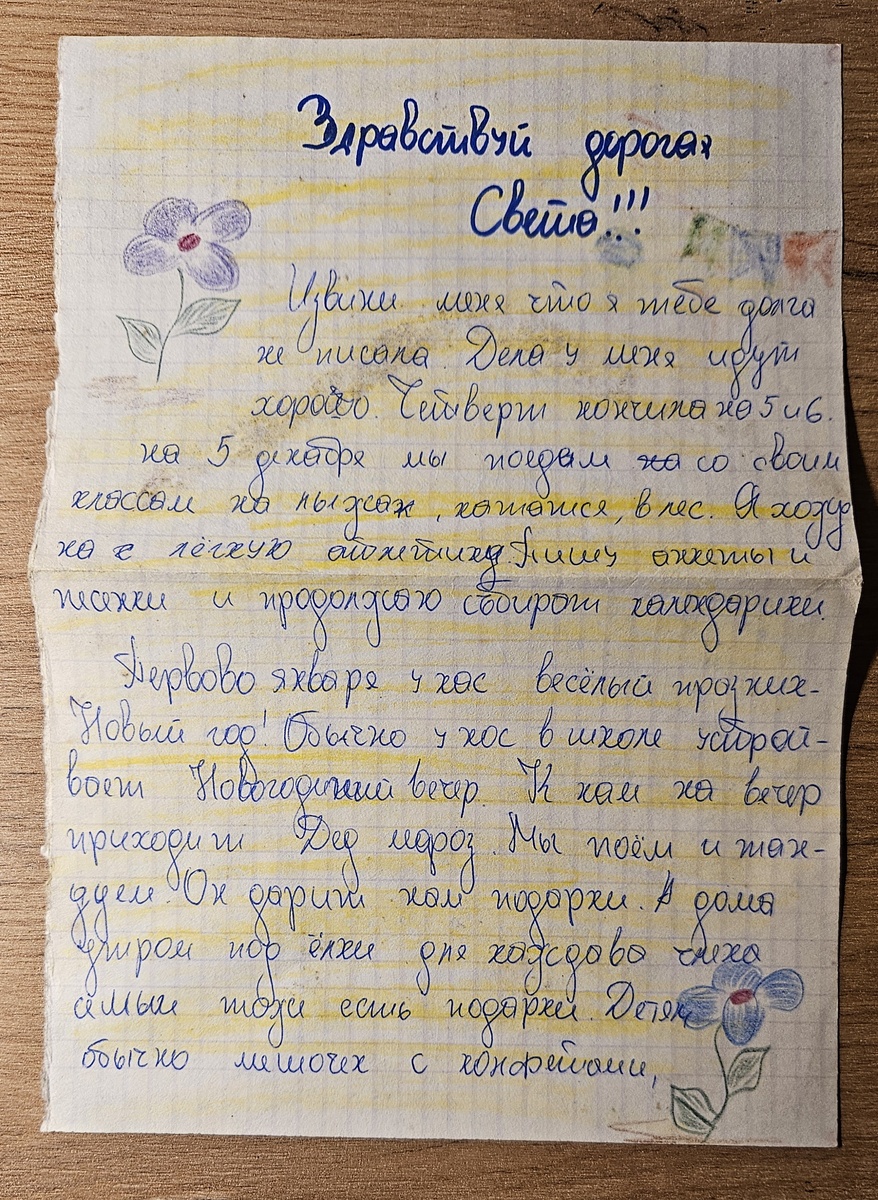 Здравствуй дорогая
Света!!!
Извини меня что я тебе долга
не писала. Дела у меня идут
хорошо. Четверт кончила на 5 и 6.
на 5 декабря мы поедам на со своим
классам на лыжах, кататся, в лес. Я хожу
на с лёгкую атлетику. Пишу анкеты и
песенки и продолжаю сбират календарики.
Первово января у нас весёлый празник-
Новый год! Обычно у нас в школе устрой-
вают Новогодний вечер. К нам на вечер
приходит Дед мороз. Мы поём и тан-
цуем. Он дарит нам подарки. А дома
утром под ёлки для каждова члена
семьи тоже есть подарки. Детям
обычно мешочек с конфетами,